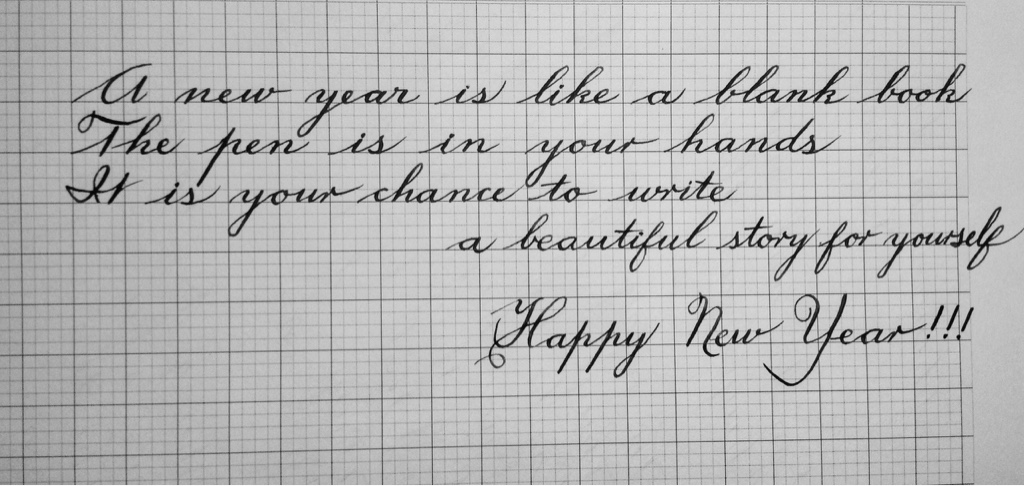 A new year is like a blank book
The pen is in your hands
It is your chance to write
a beautiful story for yourself
Happy New Year!!!